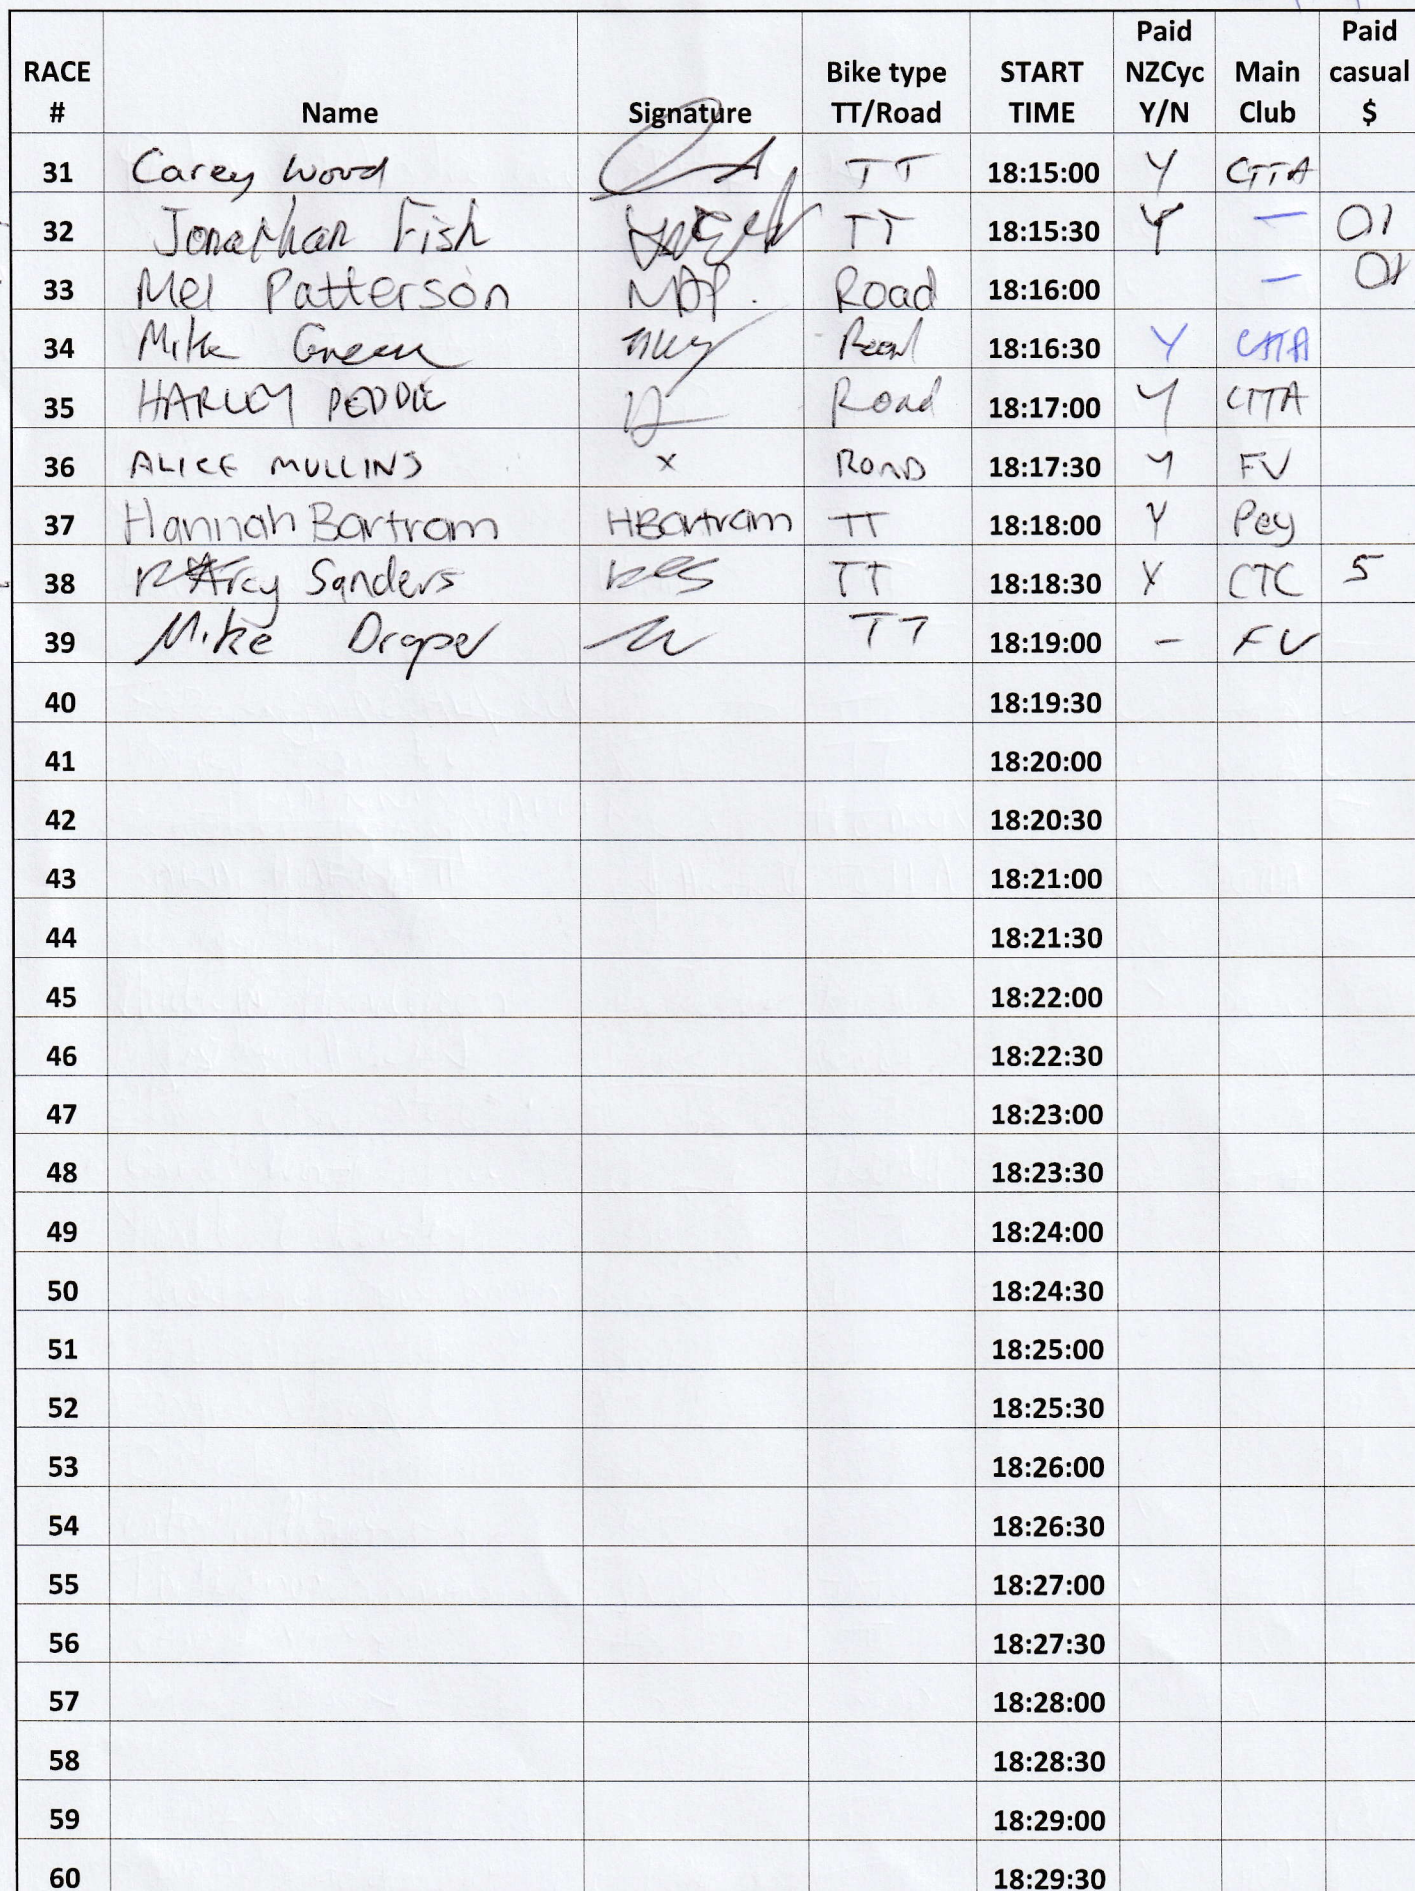 RACE # Name Signature Bike type TT/Road START TIME Paid NZCyc Y/N Main Club Paid casual $
31 Carey Wood TT 18:15:00 Y CTTA
32 Jonathan Fish TT 18:15:30 Y —
33 Mel Patterson MDP. Road 18:16:00 —
34 Mike Green Road 18:16:30 Y CTTA
35 HARLEY PEDDIE Road 18:17:00 Y CTTA
36 ALICE MULLINS x ROAD 18:17:30 Y FV
37 Hannah Bartram HBartram TT 18:18:00 Y Pey
38 Sanders TT 18:18:30 Y CTC 5
39 Mike Draper TT 18:19:00 – FV
40 18:19:30
41 18:20:00
42 18:20:30
43 18:21:00
44 18:21:30
45 18:22:00
46 18:22:30
47 18:23:00
48 18:23:30
49 18:24:00
50 18:24:30
51 18:25:00
52 18:25:30
53 18:26:00
54 18:26:30
55 18:27:00
56 18:27:30
57 18:28:00
58 18:28:30
59 18:29:00
60 18:29:30